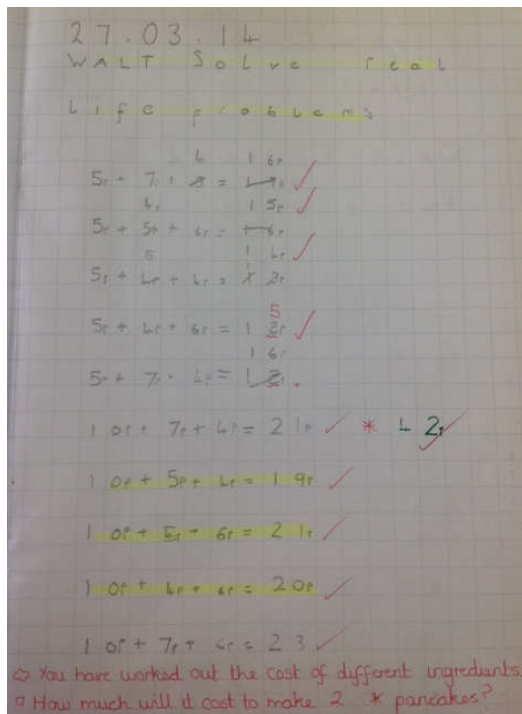 27.03.14
WALT Solve real
Life problems
4 16p
5p + 7p + = ✓
4p 15p ✓
5p + 5p + 6p =
5 1 4p ✓
5p + 4p + 4p = 1 3p
5
5p + 4p + 6p = 1 3p ✓
16p
5p + 7p + 4p = 12.
10p + 7p + 4p = 21p ✓ * 42p ✓
10p + 5p + 4p = 19p ✓
10p + 5p + 6p = 21p ✓
10p + 4p + 6p = 20p ✓
10p + 7p + 6p = 23 ✓
You have worked out the cost of different ingredients.
How much will it cost to make 2 * pancakes?